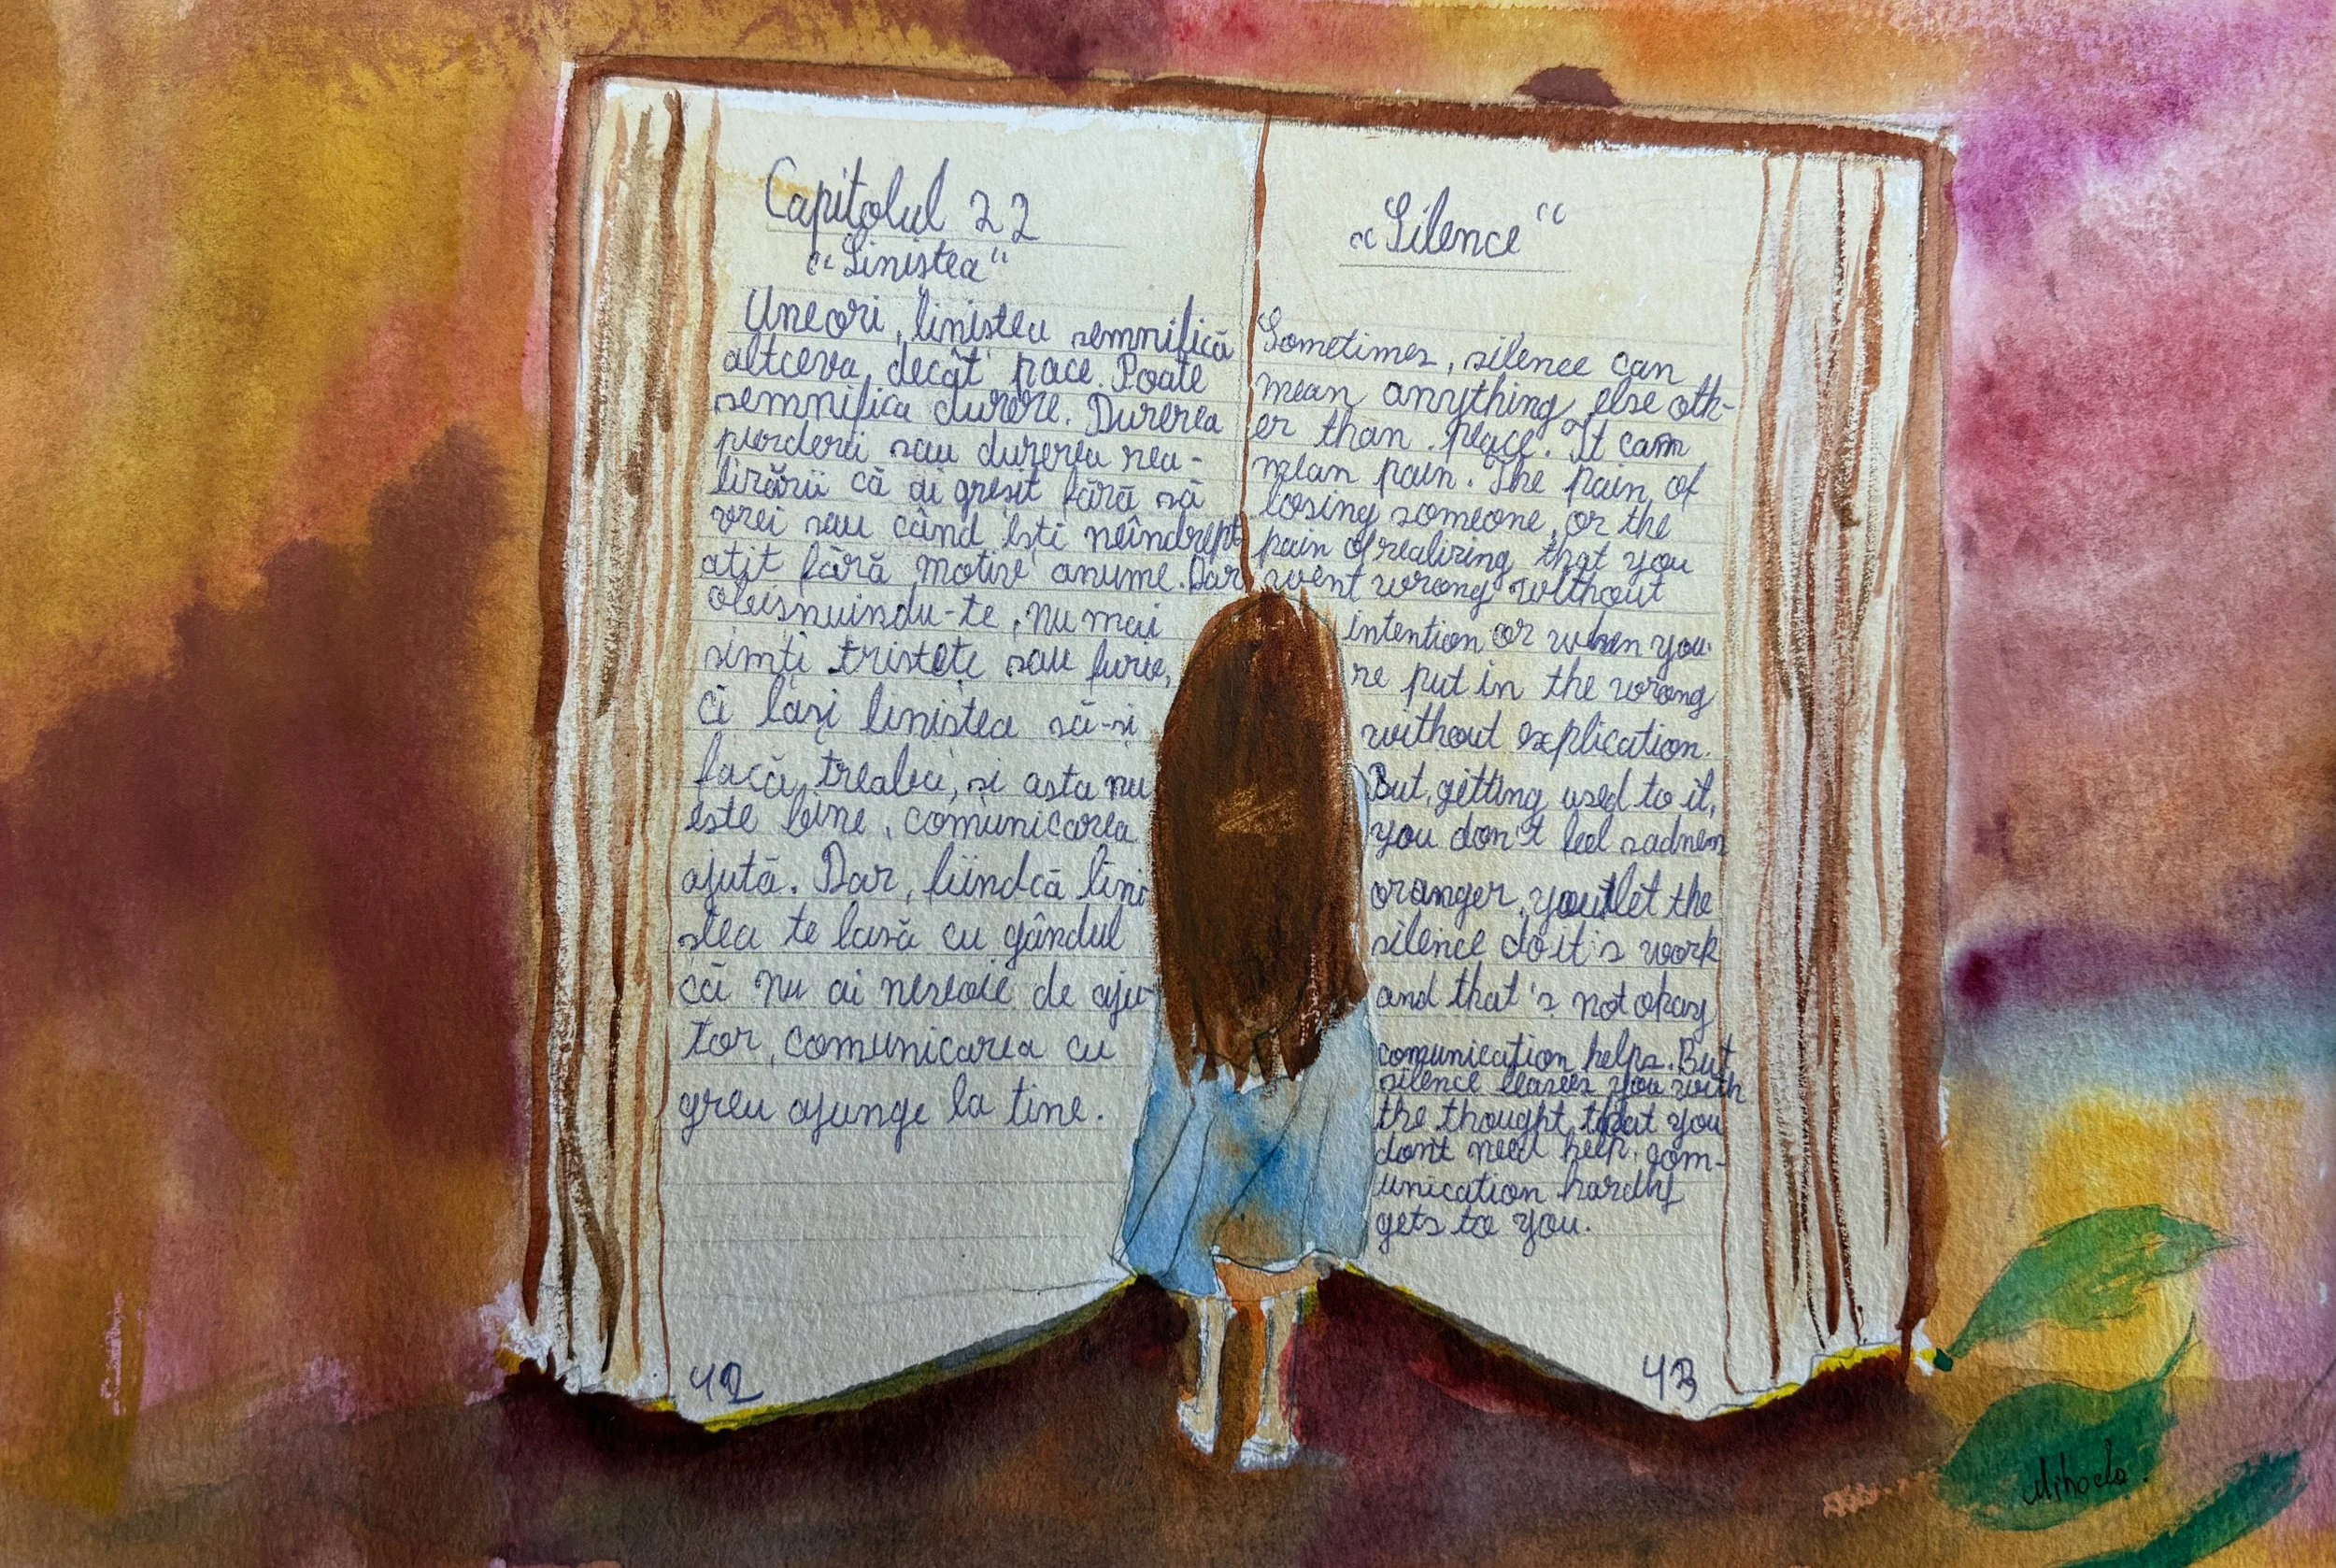 Capitolul 22
"Liniștea"
Uneori, liniștea semnifică
altceva decât pace. Poate
semnifica durere. Durerea
pierderii sau durerea rea-
lizării că ai greșit fără să
vrei sau când ești neîndrept
ățit fără motive anume. Dar
obișnuindu-te, nu mai
simți tristețe sau furie,
ci lași liniștea să-și
facă treaba, și asta nu
este bine, comunicarea
ajută. Dar, fiindcă lini
ștea te lasă cu gândul
că nu ai nevoie de aju-
tor, comunicarea cu
greu ajunge la tine.
42
"Silence"
Sometimes, silence can
mean anything else oth-
er than peace. It can
mean pain. The pain of
losing someone, or the
pain of realizing that you
went wrong without
intention or when you'
re put in the wrong
without explication.
But, getting used to it,
you don't feel sadness
or anger, you let the
silence do it's work
and that's not okay
comunication helps. But
silence leaves you with
the thought that you
don't need help, com-
unication hardly
gets to you.
43
Mihaela.